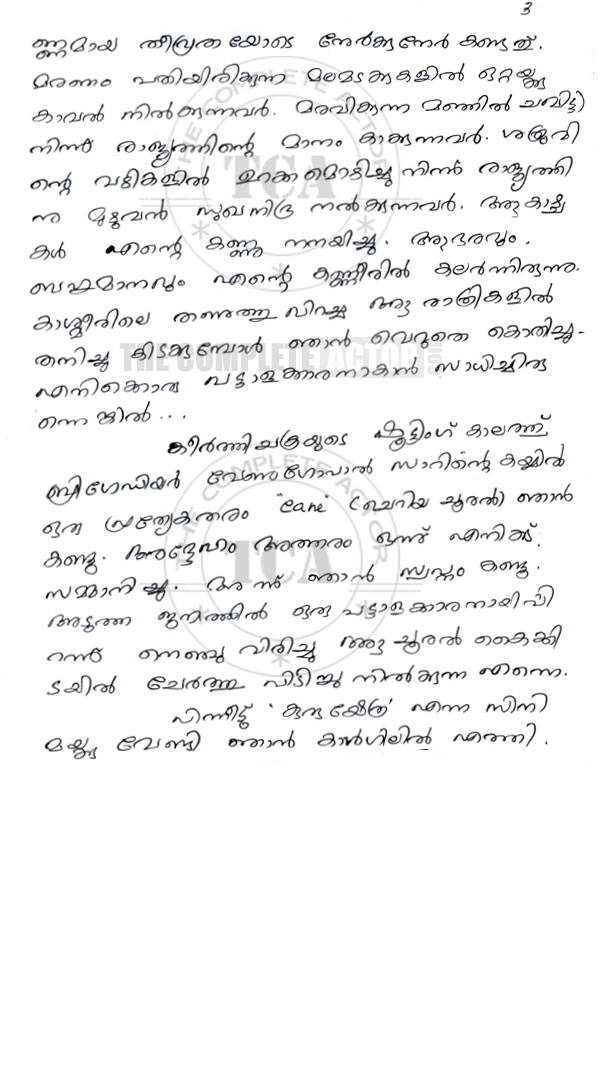 3
ണ്ണമായ തീവ്രതയോടെ നേർക്കുനേർ കണ്ടത്.
മരണം പതിയിരിക്കുന്ന മലമടക്കുകളിൽ ഒറ്റയ്ക്കു
കാവൽ നിൽക്കുന്നവർ. മരവിക്കുന്ന മഞ്ഞിൽ ചവിട്ടി
നിന്ന് രാജ്യത്തിന്റെ മാനം കാക്കുന്നവർ. ശത്രുവി
ന്റെ വഴികളിൽ ഉറക്കമൊഴിച്ചു നിന്ന് രാജ്യത്തി
നു മുഴുവൻ സുഖനിദ്ര നൽകുന്നവർ. ആ കാഴ്ച
കൾ എന്റെ കണ്ണു നനയിച്ചു. ആദരവും,
ബഹുമാനവും എന്റെ കണ്ണീരിൽ കലർന്നിരുന്നു.
കാശ്മീരിലെ തണുത്തു വിറച്ച ആ രാത്രികളിൽ
തനിച്ചു കിടക്കുമ്പോൾ ഞാൻ വെറുതെ കൊതിച്ചു-
എനിക്കൊരു പട്ടാളക്കാരനാകാൻ സാധിച്ചിരു
ന്നെങ്കിൽ...
കീർത്തിചക്രയുടെ ഷൂട്ടിംഗ് കാലത്ത്
ബ്രിഗേഡിയർ വേണുഗോപാൽ സാറിന്റെ കയ്യിൽ
ഒരു പ്രത്യേകതരം "cane" (ചെറിയ ചൂരൽ) ഞാൻ
കണ്ടു. അദ്ദേഹം അത്തരം ഒന്ന് എനിക്ക്
സമ്മാനിച്ചു. അന്ന് ഞാൻ സ്വപ്നം കണ്ടു.
അടുത്ത ജന്മത്തിൽ ഒരു പട്ടാളക്കാരനായി പി
റന്ന് നെഞ്ചു വിരിച്ചു ആ ചൂരൽ കൈക്കി
ടയിൽ ചേർത്തു പിടിച്ചു നിൽക്കുന്ന എന്നെ.
പിന്നീട് 'കുരുക്ഷേത്ര' എന്ന സിനി
മയ്ക്കു വേണ്ടി ഞാൻ കാർഗിലിൽ എത്തി.
THE COMPLETE ACTOR
TCA
THE COMPLETE ACTOR
THE COMPLETE ACTOR
TCA